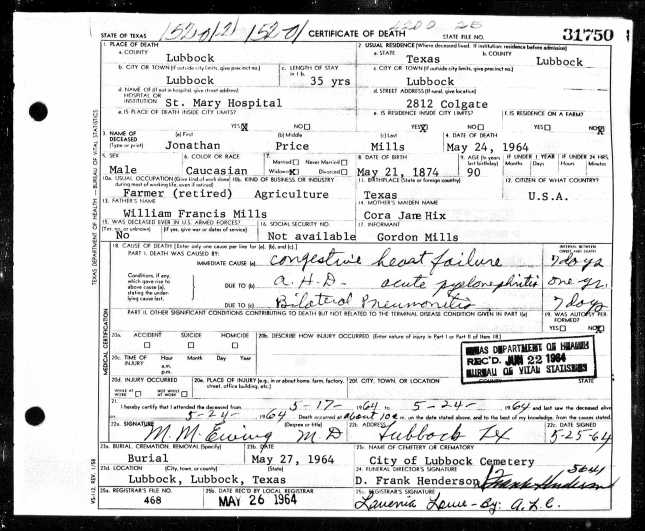 STATE OF TEXAS 1520/2/ 1520/ CERTIFICATE OF DEATH STATE FILE NO. 31750
1. PLACE OF DEATH 2. USUAL RESIDENCE (Where deceased lived. If institution: residence before admission)
a. COUNTY Lubbock a. STATE Texas b. COUNTY Lubbock
b. CITY OR TOWN (If outside city limits, give precinct no.) Lubbock c. LENGTH OF STAY in 1 b. 35 yrs c. CITY OR TOWN (If outside city limits, give precinct no.) Lubbock
d. NAME OF (If not in hospital, give street address) HOSPITAL OR INSTITUTION St. Mary Hospital d. STREET ADDRESS (If rural, give location) 2812 Colgate
e. IS PLACE OF DEATH INSIDE CITY LIMITS? YES X NO e. IS RESIDENCE INSIDE CITY LIMITS? YES X NO f. IS RESIDENCE ON A FARM? YES NO X
3. NAME OF DECEASED (Type or print) (a) First Jonathan (b) Middle Price (c) Last Mills 4. DATE OF DEATH May 24, 1964
5. SEX Male 6. COLOR OR RACE Caucasian 7. Married Never Married Widowed X Divorced 8. DATE OF BIRTH May 21, 1874 9. AGE (In years last birthday) 90 IF UNDER 1 YEAR Months Days IF UNDER 24 HRS. Hours Minutes
10a. USUAL OCCUPATION (Give kind of work done during most of working life, even if retired) Farmer (retired) 10b. KIND OF BUSINESS OR INDUSTRY Agriculture 11. BIRTHPLACE (State or foreign country) Texas 12. CITIZEN OF WHAT COUNTRY? U.S.A.
13. FATHER'S NAME William Francis Mills 14. MOTHER'S MAIDEN NAME Cora Jane Hix
15. WAS DECEASED EVER IN U.S. ARMED FORCES? (Yes, no, or unknown) (If yes, give war or dates of service) No 16. SOCIAL SECURITY NO. Not available 17. INFORMANT Gordon Mills
18. CAUSE OF DEATH [Enter only one cause per line for (a), (b), and (c).] INTERVAL BETWEEN ONSET AND DEATH
PART I. DEATH WAS CAUSED BY:
IMMEDIATE CAUSE (a) Congestive heart failure 7 days
Conditions, if any, which gave rise to above cause (a), stating the underlying cause last. DUE TO (b) A.H.D. - acute pyelonephritis one yr.
DUE TO (c) Bilateral Pneumonitis 7 days
PART II. OTHER SIGNIFICANT CONDITIONS CONTRIBUTING TO DEATH BUT NOT RELATED TO THE TERMINAL DISEASE CONDITION GIVEN IN PART I(a) 19. WAS AUTOPSY PERFORMED? YES NO X
20a. ACCIDENT SUICIDE HOMICIDE 20b. DESCRIBE HOW INJURY OCCURRED. (Enter nature of injury in Part I or Part II of item 18.)
20c. TIME OF INJURY Hour a.m. p.m. Month Day Year
TEXAS DEPARTMENT OF HEALTH
REC'D. JUN 22 1964
BUREAU OF VITAL STATISTICS
20d. INJURY OCCURRED WHILE AT WORK NOT WHILE AT WORK 20e. PLACE OF INJURY (e.g., in or about home, farm, factory, street, office building, etc.) 20f. CITY, TOWN, OR LOCATION COUNTY STATE
21. I hereby certify that I attended the deceased from 5-17- 1964 to 5-24- 1964 and last saw the deceased alive
1964 Death occurred at about 10a m. on the date stated above, and to the best of my knowledge, from the causes stated.
22a. SIGNATURE (Degree or title) M. M. Ewing M D 22b. ADDRESS Lubbock Tx 22c. DATE SIGNED 5-25-64
23a. BURIAL, CREMATION, REMOVAL (Specify) Burial 23b. DATE May 27, 1964 23c. NAME OF CEMETERY OR CREMATORY City of Lubbock Cemetery
23d. LOCATION (City, town, or county) (State) Lubbock, Lubbock, Texas 24. FUNERAL DIRECTOR'S SIGNATURE D. Frank Henderson Frank Henderson
25a. REGISTRAR'S FILE NO. 468 25b. DATE REC'D BY LOCAL REGISTRAR MAY 26 1964 25c. REGISTRAR'S SIGNATURE Lavenia Lowe - By: A.L.C.
TEXAS DEPARTMENT OF HEALTH — BUREAU OF VITAL STATISTICS
MEDICAL CERTIFICATION
VS-112, REV. 1/58